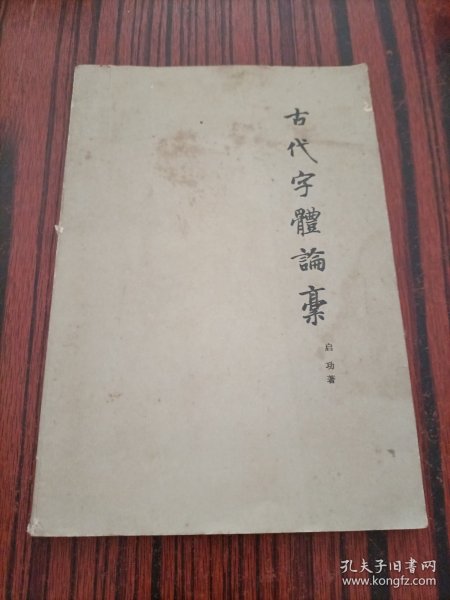 古代字體論藁
启功著
孔夫子旧书网
www.kongfz.com